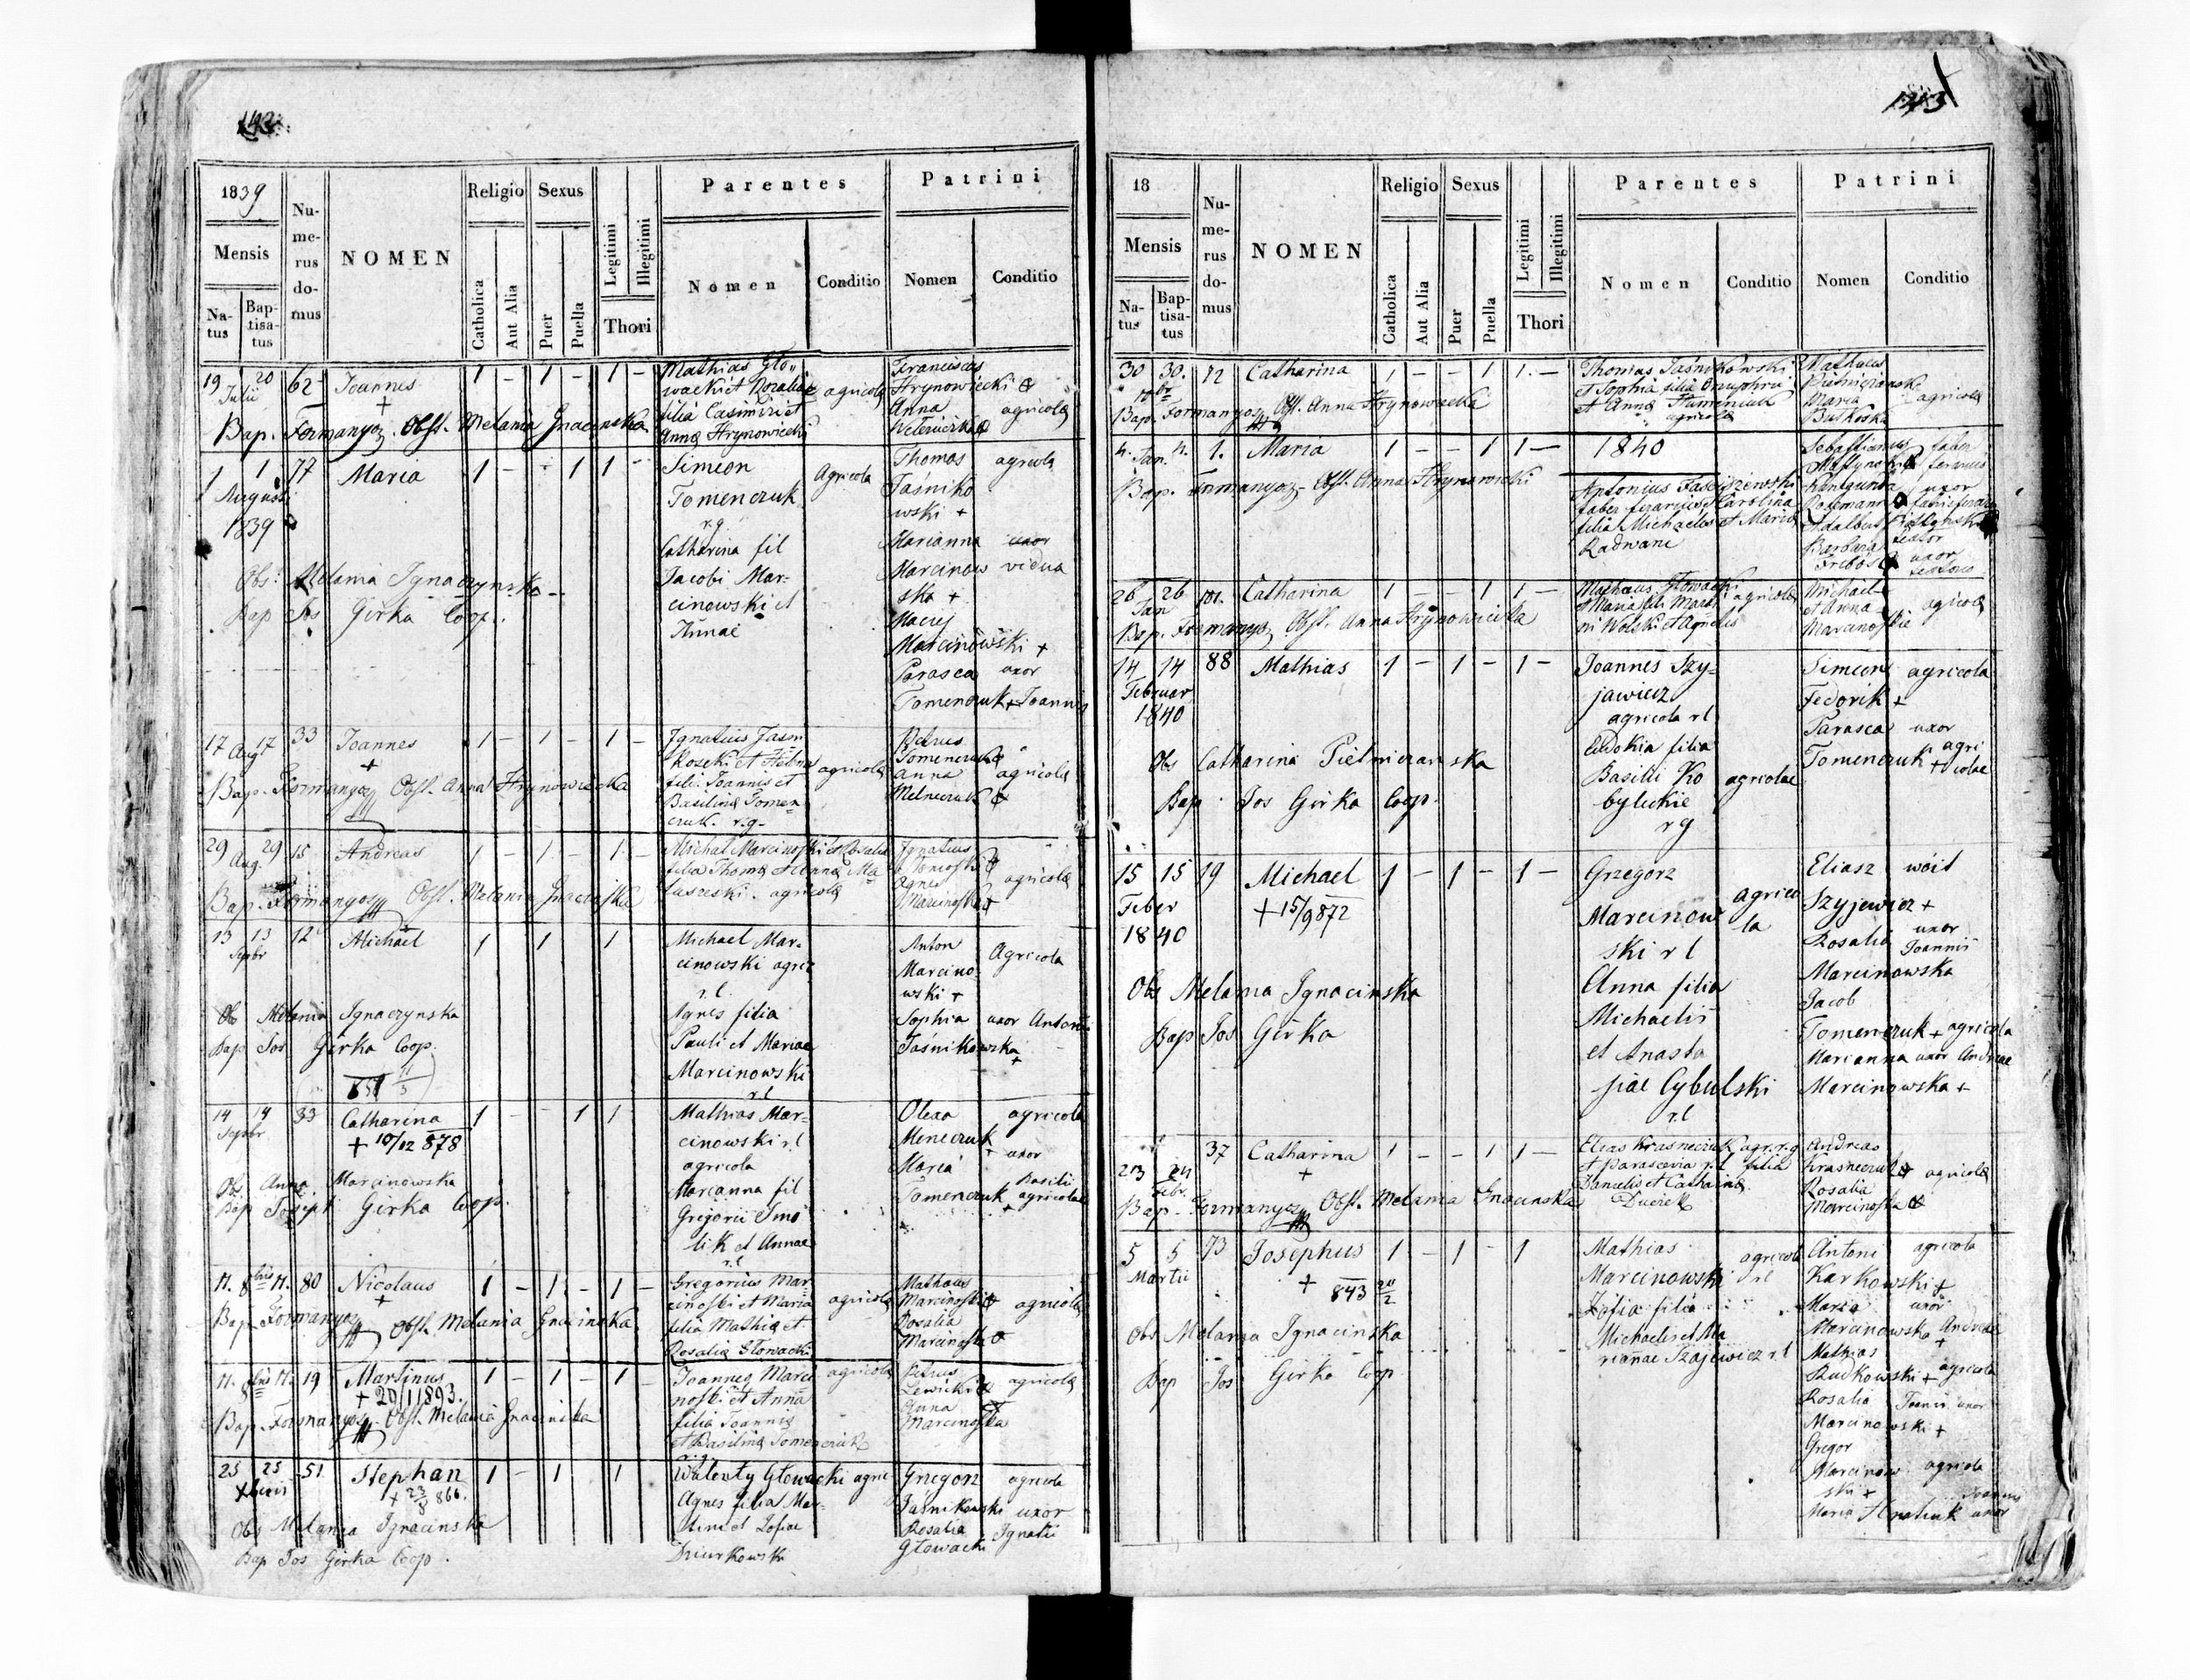 142
1839
Mensis
Natus
Baptisatus
Numerus domus
NOMEN
Religio
Catholica
Aut Alia
Sexus
Puer
Puella
Legitimi
Illegitimi
Thori
Parentes
Nomen
Conditio
Patrini
Nomen
Conditio
19 20 62 Joannes 1 – 1 – 1 –
Julii
+
Mathias Glo-
wacki et Rozalia agricola
filia Casimiri et
Anna Hrynowiecki
Franciscus
Hrynowiecki +
Anna agricola
Bap. Formanyosz. Obst. Melania Gnacinska
1 1 77 Maria 1 – – 1 1 –
Augusti
1839
Simeon Agricola
Tomenczuk
r.g.
Catharina fil
Jacobi Mar-
cinowski et
Annae
Thomas agricola
Jaśniko
wski +
Marianna uxor
Marcinow vidua
ska +
Maciej
Marcinowski +
Parasca uxor
Tomenczuk + Joannis
Obs: Melania Ignaczynska
Bap Jos Girka Coop.
17 17 33 Joannes 1 – 1 – 1 –
Aug
+
Ignatius Jasni
koski et Helena agricola
filia Joannis et
Basilina Tomen
czuk. r.g.
Petrus
Tomenczuk +
Anna agricola
Melneczuk +
Bap. Formanyosz Obst. Anna Hrynowiecka
29 29 15 Andreas 1 – 1 – 1 –
Aug.
Michal Marcinoski et Rosalia
filia Thoma et Anna Ma
laszeski. agricola
Ignatius
Agnes agricola
Marcinoska +
Bap. Formanyosz Obst. Melania Gnacinska
13 13 12 Michael 1 1 1
Septbr
Michael Mar-
cinowski agric
r.l.
Agnes filia
Pauli et Mariae
Marcinowski
r.l
Anton Agricola
Marcino-
wski +
Sophia uxor Antoni
Jaśnikowska
+
Ob Melania Ignaczynska
Bap Jos Girka Coop.
14 14 33 Catharina 1 – – 1 1
Septbr
+ 10/12 878
Mathias Mar-
cinowski r.l
agricola
Marianna fil
Gregorii Smo
lik et Annae
r.l
Olexa agricola
Meneczuk
+ uxor
Maria Basilii
Tomenczuk agricolae
+
Ob. Anna Marcinowska
Bap Joseph Girka Coop.
11. 8bris 11. 80 Nicolaus 1 – 1 – 1 –
+
Gregorius Mar
cinoski et Maria agricola
filia Mathia et
Rosalia Głowacki
Mathaus
Marcinoski + agricola
Rosalia
Marcinoska +
Bap. Formanyosz Obst. Melania Gnacinska
11. 8bris 11. 19 Martinus 1 – 1 – 1 –
+ 20/1 1893.
Joannes Marci agricola
noski et Anna
filia Joannis
et Basilina Tomenczuk
Petrus
Lewicki + agricola
Anna +
Marcinoska
Bap. Formanyosz. Obst. Melania Gnacinska
25 25 51 Stephan 1 – 1 1
Xbris
+ 23/3 866.
Walenty Głowacki agric
Agnes filia Mar-
tini et Zofiae
Dziurkowski
Grzegorz agricola
Jaśnikowski uxor
Rosalia Ignatii
Głowacki
Obs Melania Ignacinska
Bap Jos Girka Coop.
143
18
Mensis
Natus
Baptisatus
Numerus domus
NOMEN
Religio
Catholica
Aut Alia
Sexus
Puer
Puella
Legitimi
Illegitimi
Thori
Parentes
Nomen
Conditio
Patrini
Nomen
Conditio
30 30. 12 Catharina 1 – – 1 1. –
Thomas Jaśnikowski
et Sophia filia Onuphrii
et Anna Humeniuk
agricola
Mathaus
Maria agricola
Butkoska
Bap. Formanyosz Obst. Anna Hrynowiecka
4. 4. 1. Maria 1 – – 1 1 –
Jan.
1840
Antonius
faber ferarius et Carolina
filia Michaelis et Maria
Radwani
Sebastianus faber
ferarius
Kunegunda uxor
Adalbert
Barbara textor
uxor
Bap. Formanyosz. Obst. Anna Hrynowiecki
26 26 101. Catharina 1 – – 1 1 –
Jan
Mathaus Głowacki
et Maria filia Marti agricola
ni Wolski et Agnetis
Michael
et Anna agricola
Marcinoskie
Bap. Formanyosz Obst. Anna Hrynowiecka
14 14 88 Mathias 1 – 1 – 1 –
Februar
1840
Joannes Szy-
jawicz
agricola r l
Eudokia filia
Basilii Ko agricolae
byluckie
r g
Simeon agricola
Fedorik +
Parasca uxor
Tomenczuk agri
+ colae
Obs Catharina Pietniczanska
Bap. Jos Girka Coop.
15 15 19 Michael 1 – 1 – 1 –
Feber
1840
+ 15/9 872
Grzegorz
Marcinow agrico
ski r l la
Anna filia
Michaelis
et Anasta
siae Cybulski
r.l
Eliasz wóit
Szyjewicz +
Rosalia uxor Joannis
Marcinowska
Jacob
Tomenczuk + agricola
Marianna uxor Andreae
Marcinowska +
Obs Melania Ignacinska
Bap Jos Girka
23 24 37 Catharina 1 – – 1 1 –
Febr.
+
Elias Krasneczuk agr. r.g
et Parascevia r.l filia
Danielis et Catharina
Andreas
Krasneczuk + agricola
Rosalia
Marcinoska +
Bap. Formanyosz Obst. Melania Gnacinska
5 5 73 Josephus 1 – 1 – 1
Martii
+ 843
Mathias agricola
Marcinowski r l
Zofia filia
Michaelis et Ma
riannae Szajewicz r.l
Antoni agricola
Karkowski +
Maria uxor
Marcinowska Andreae
+
Mathias
Rudkowski + agricola
Rosalia Joannis uxor
Marcinowski +
Gregor
Marcinow agricola
ski +
Joannis
Maria Hnatiuk uxor
Obs Melania Ignacinska
Bap Jos Girka Coop